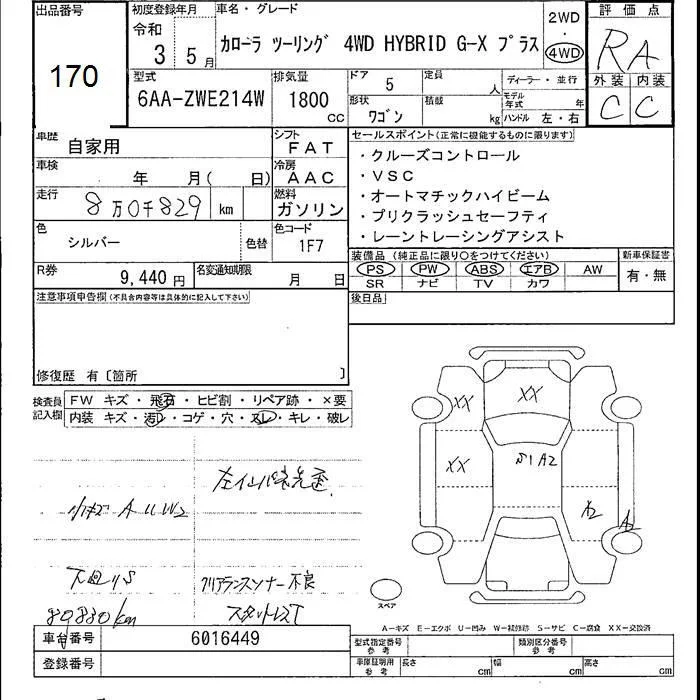 出品番号 初度登録年月 車名・グレード 2WD ・ 4WD 評価点
170 令和 3年 5月 カローラ ツーリング 4WD HYBRID G-X プラス RA
型式 排気量 ドア 5 定員 人 ディーラー・並行 外装 内装
6AA-ZWE214W 1800 CC 形状 ワゴン 積載 kg モデル年式 年 ハンドル 左・右 C C
車歴 自家用 シフト FAT セールスポイント(正常に機能するものに限ります)
車検 年 月( 日) 冷房 AAC
・クルーズコントロール
・VSC
・オートマチックハイビーム
・プリクラッシュセーフティ
・レーントレーシングアシスト
走行 8万0千829 km 燃料 ガソリン
色 シルバー 色替 色コード 1F7
装備品 (純正品に限り○をつけてください) 新車保証書
PS PW ABS エアB AW 有・無
SR ナビ TV カワ
R券 9,440 円 名変通知期限 月 日
後日品
注意事項申告欄(不具合内容等は具体的に記入して下さい)
修復歴 有〔箇所 〕
検査員記入欄 FW キズ・飛石・ヒビ割・リペア跡・×要
内装 キズ・汚レ・コゲ・穴・スレ・キレ・破レ
XX XX
XX S1A2
A2 A2
小キズ A U W2
下廻りS クリアランスソナー不良
80830km スタットレスT
スペア
A-キズ E-エクボ U-凹み W-補修跡 S-サビ C-腐食 XX-交換済
車台番号 6016449 型式指定番号 参考 類別区分番号 参考
登録番号 車庫証明用 参考 長さ cm 幅 cm 高さ cm